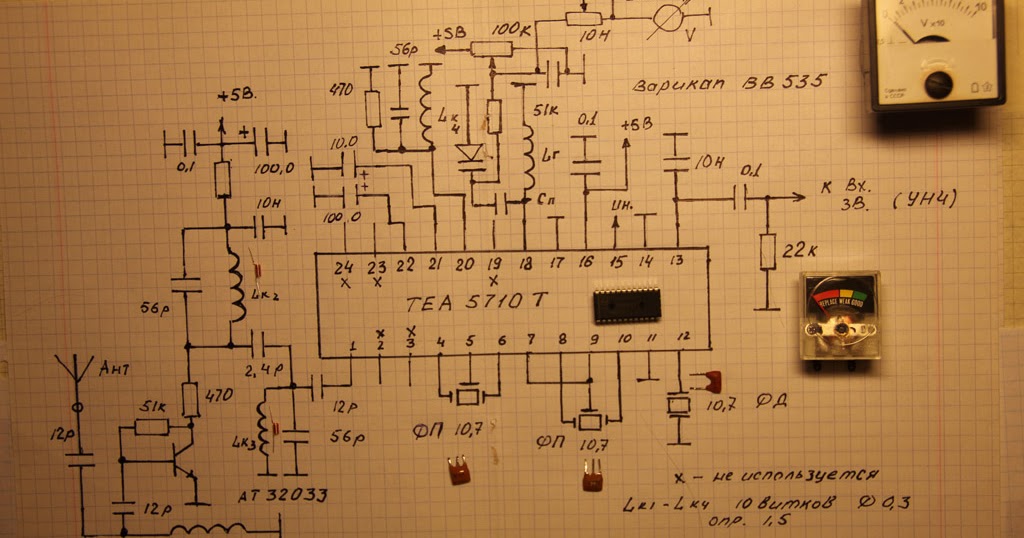 +5В
100к
10Н
V
56р
470
Lк4
51к
Lг
Сп
0,1
+5В
10Н
Варикап ВВ 535
V x10
10
Сделано в СССР
+5В.
0,1
+
100,0
10Н
56р
Lк2
2,4р
10,0
+
+
100,0
ИН.
0,1
К ВХ.
ЗВ. (УНЧ)
22к
24 23 22 21 20 19 18 17 16 15 14 13
х х х
TEA 5710 T
х х
1 2 3 4 5 6 7 8 9 10 11 12
REPLACE WEAK GOOD
Ант
12р
51к
470
Lк3
56р
12р
12р
АТ 32033
ФП 10,7
ФП 10,7
10,7 ФД
х – не используется
Lк1 – Lк4 10 витков Ф 0,3
опр. 1,5